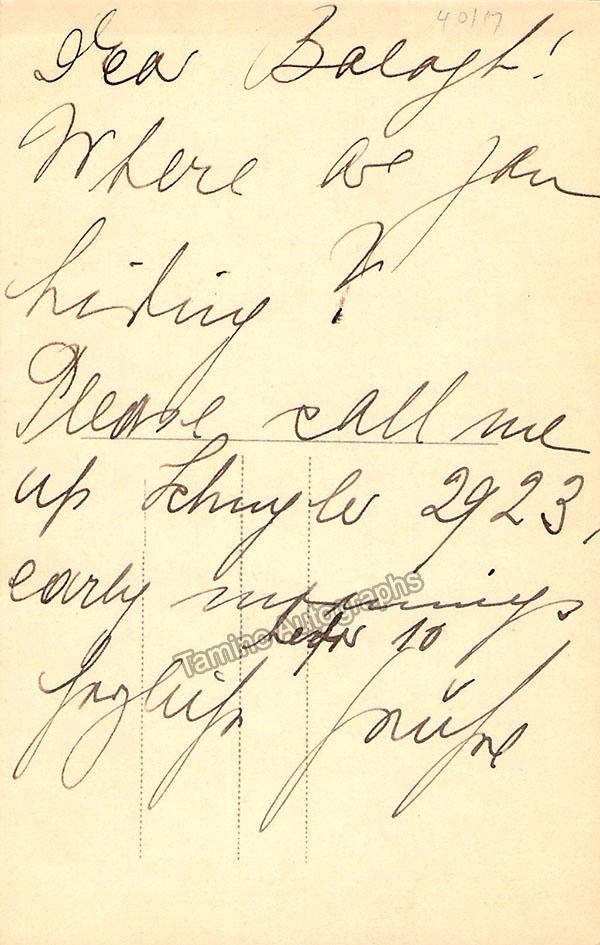 40/17
Dear Balogh!
Where are you
hiding?
Please call me
up Schuyler 2923,
early mornings
before 10
Herzlichst Grüße
Tamino Autographs